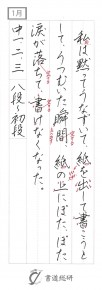 1月
私は黙ってうなずいて、紙を出して書こうと
して、うつむいた瞬間、紙の上にぼた、ぼた
涙が落ちて、書けなくなった。
中一・二・三 八段〜初段
書道総研